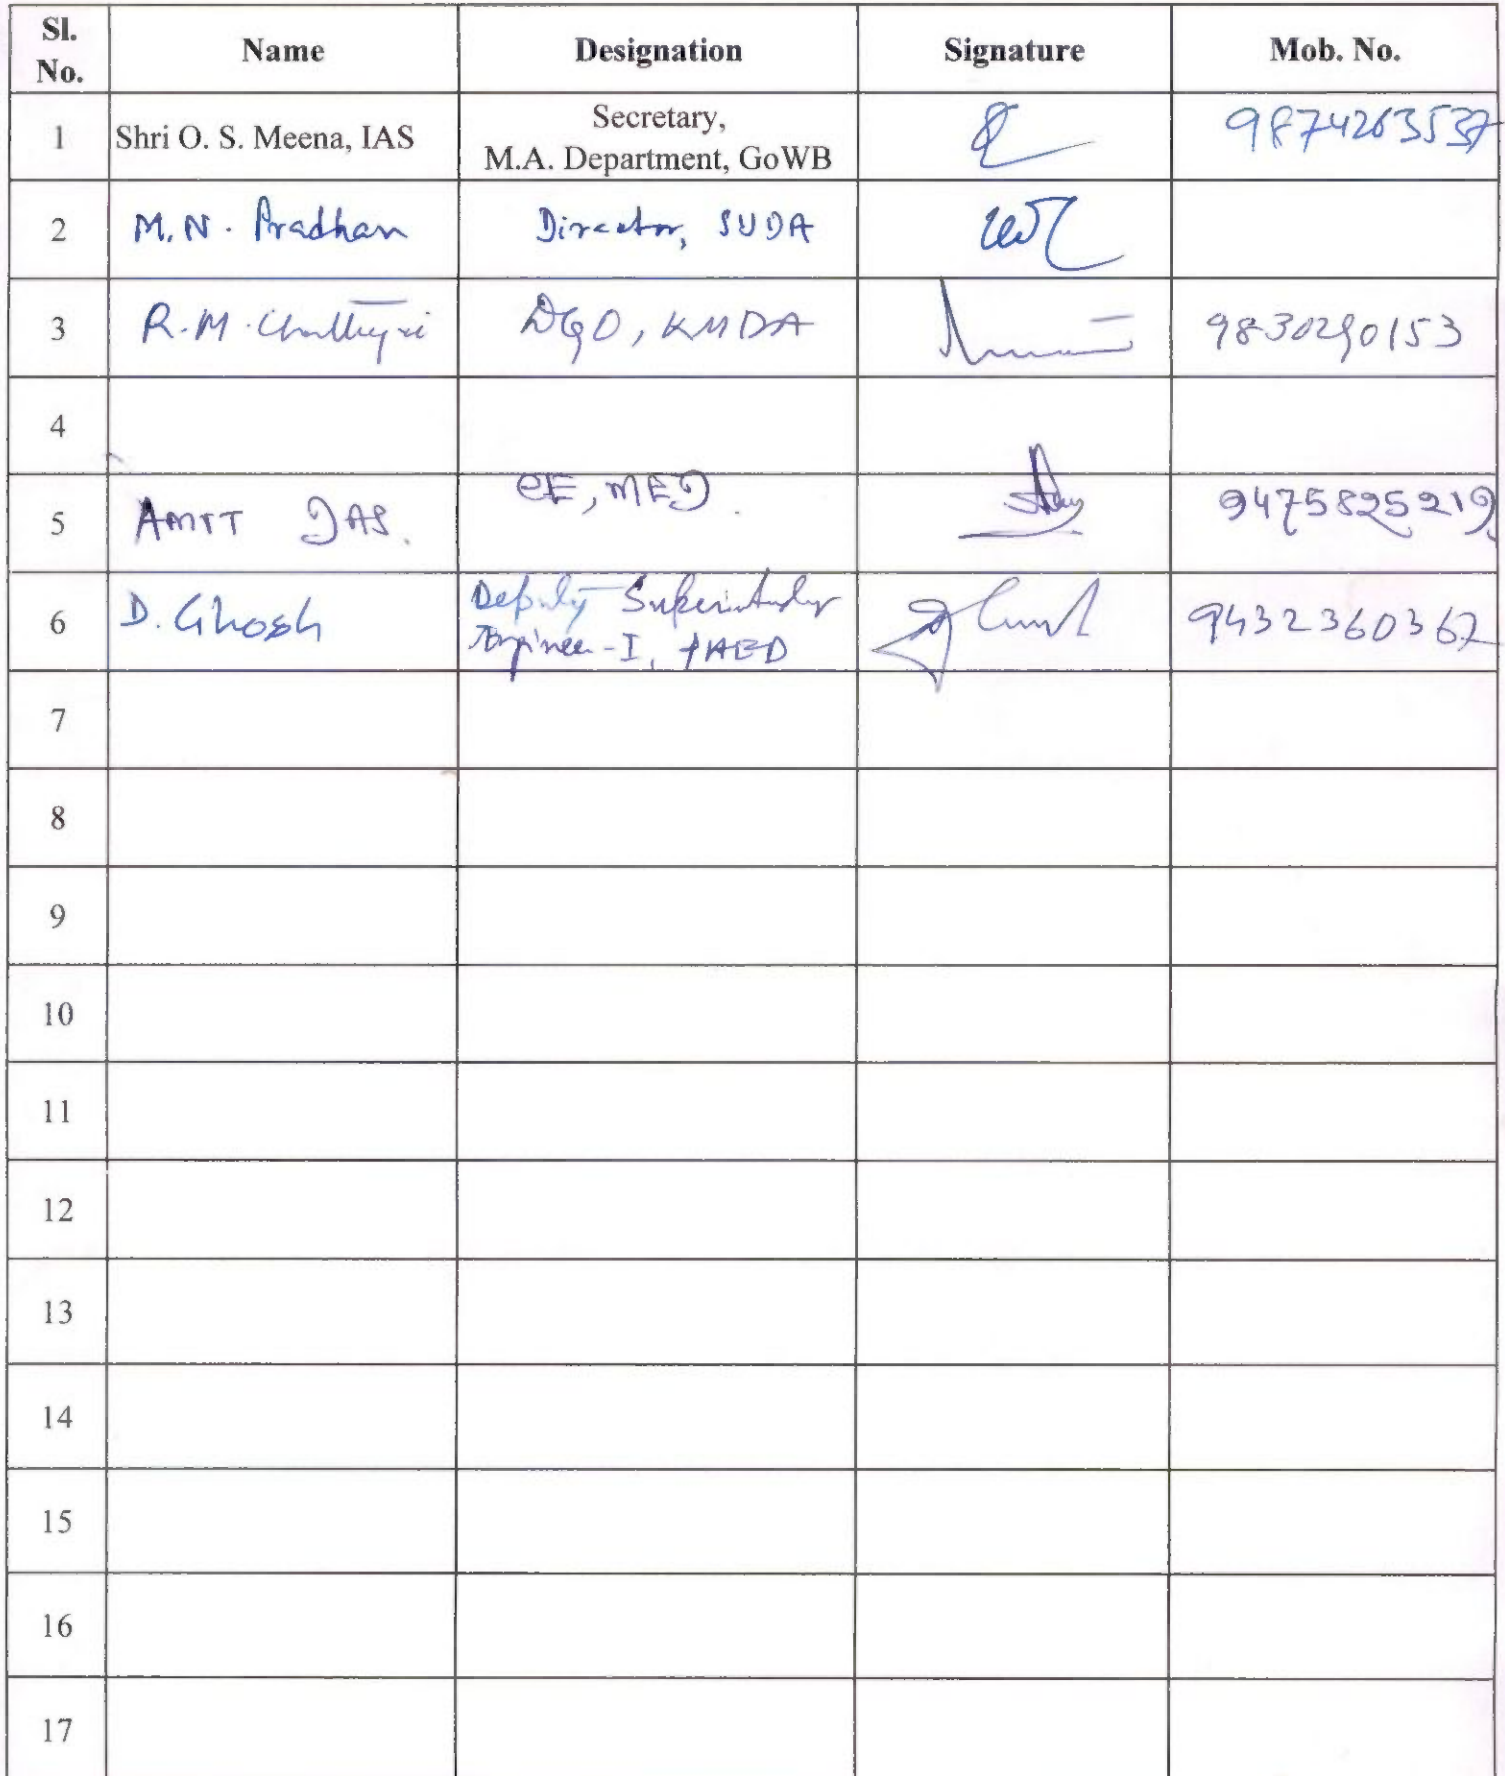 Sl. No. Name Designation Signature Mob. No.
1 Shri O. S. Meena, IAS Secretary, M.A. Department, GoWB 9874263537
2 M.N. Pradhan Director, SUDA
3 R.M. KMDA 9830290153
4
5 AMIT DAS. EE, MED. 9475825219
6 D. Ghosh Deputy Engineer-I, 9432360362
7
8
9
10
11
12
13
14
15
16
17